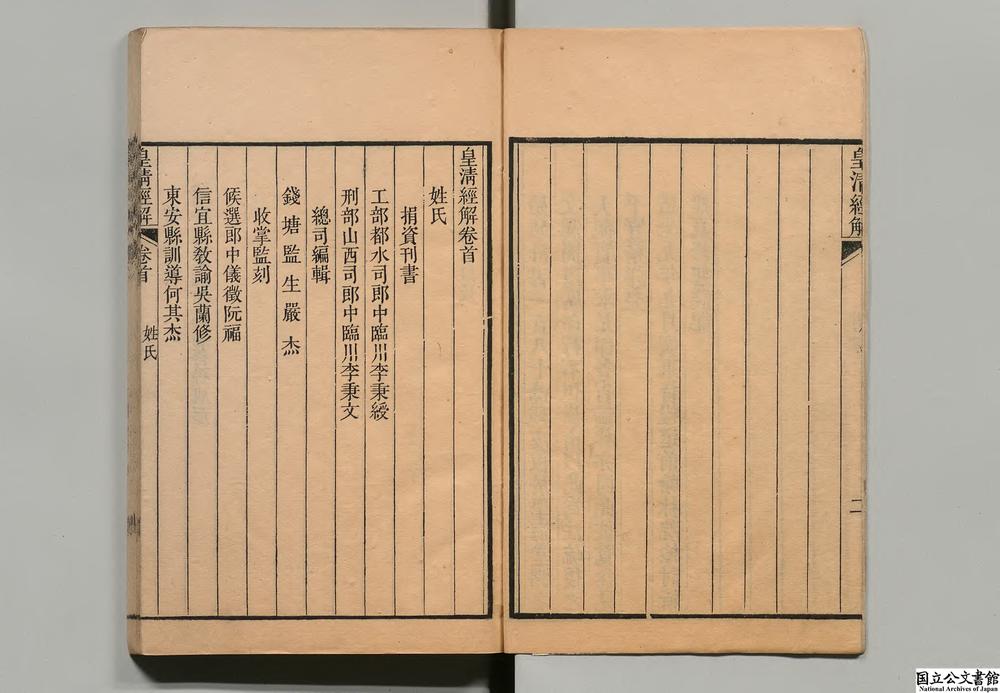 皇清經解
二
皇清經解卷首
姓氏
捐資刊書
工部都水司郎中臨川李秉綬
刑部山西司郎中臨川李秉文
總司編輯
錢塘監生嚴杰
收掌監刻
候選郎中儀徵阮福
信宜縣敎諭吳蘭修
東安縣訓導何其杰
皇清經解 卷首 姓氏
国立公文書館
National Archives of Japan